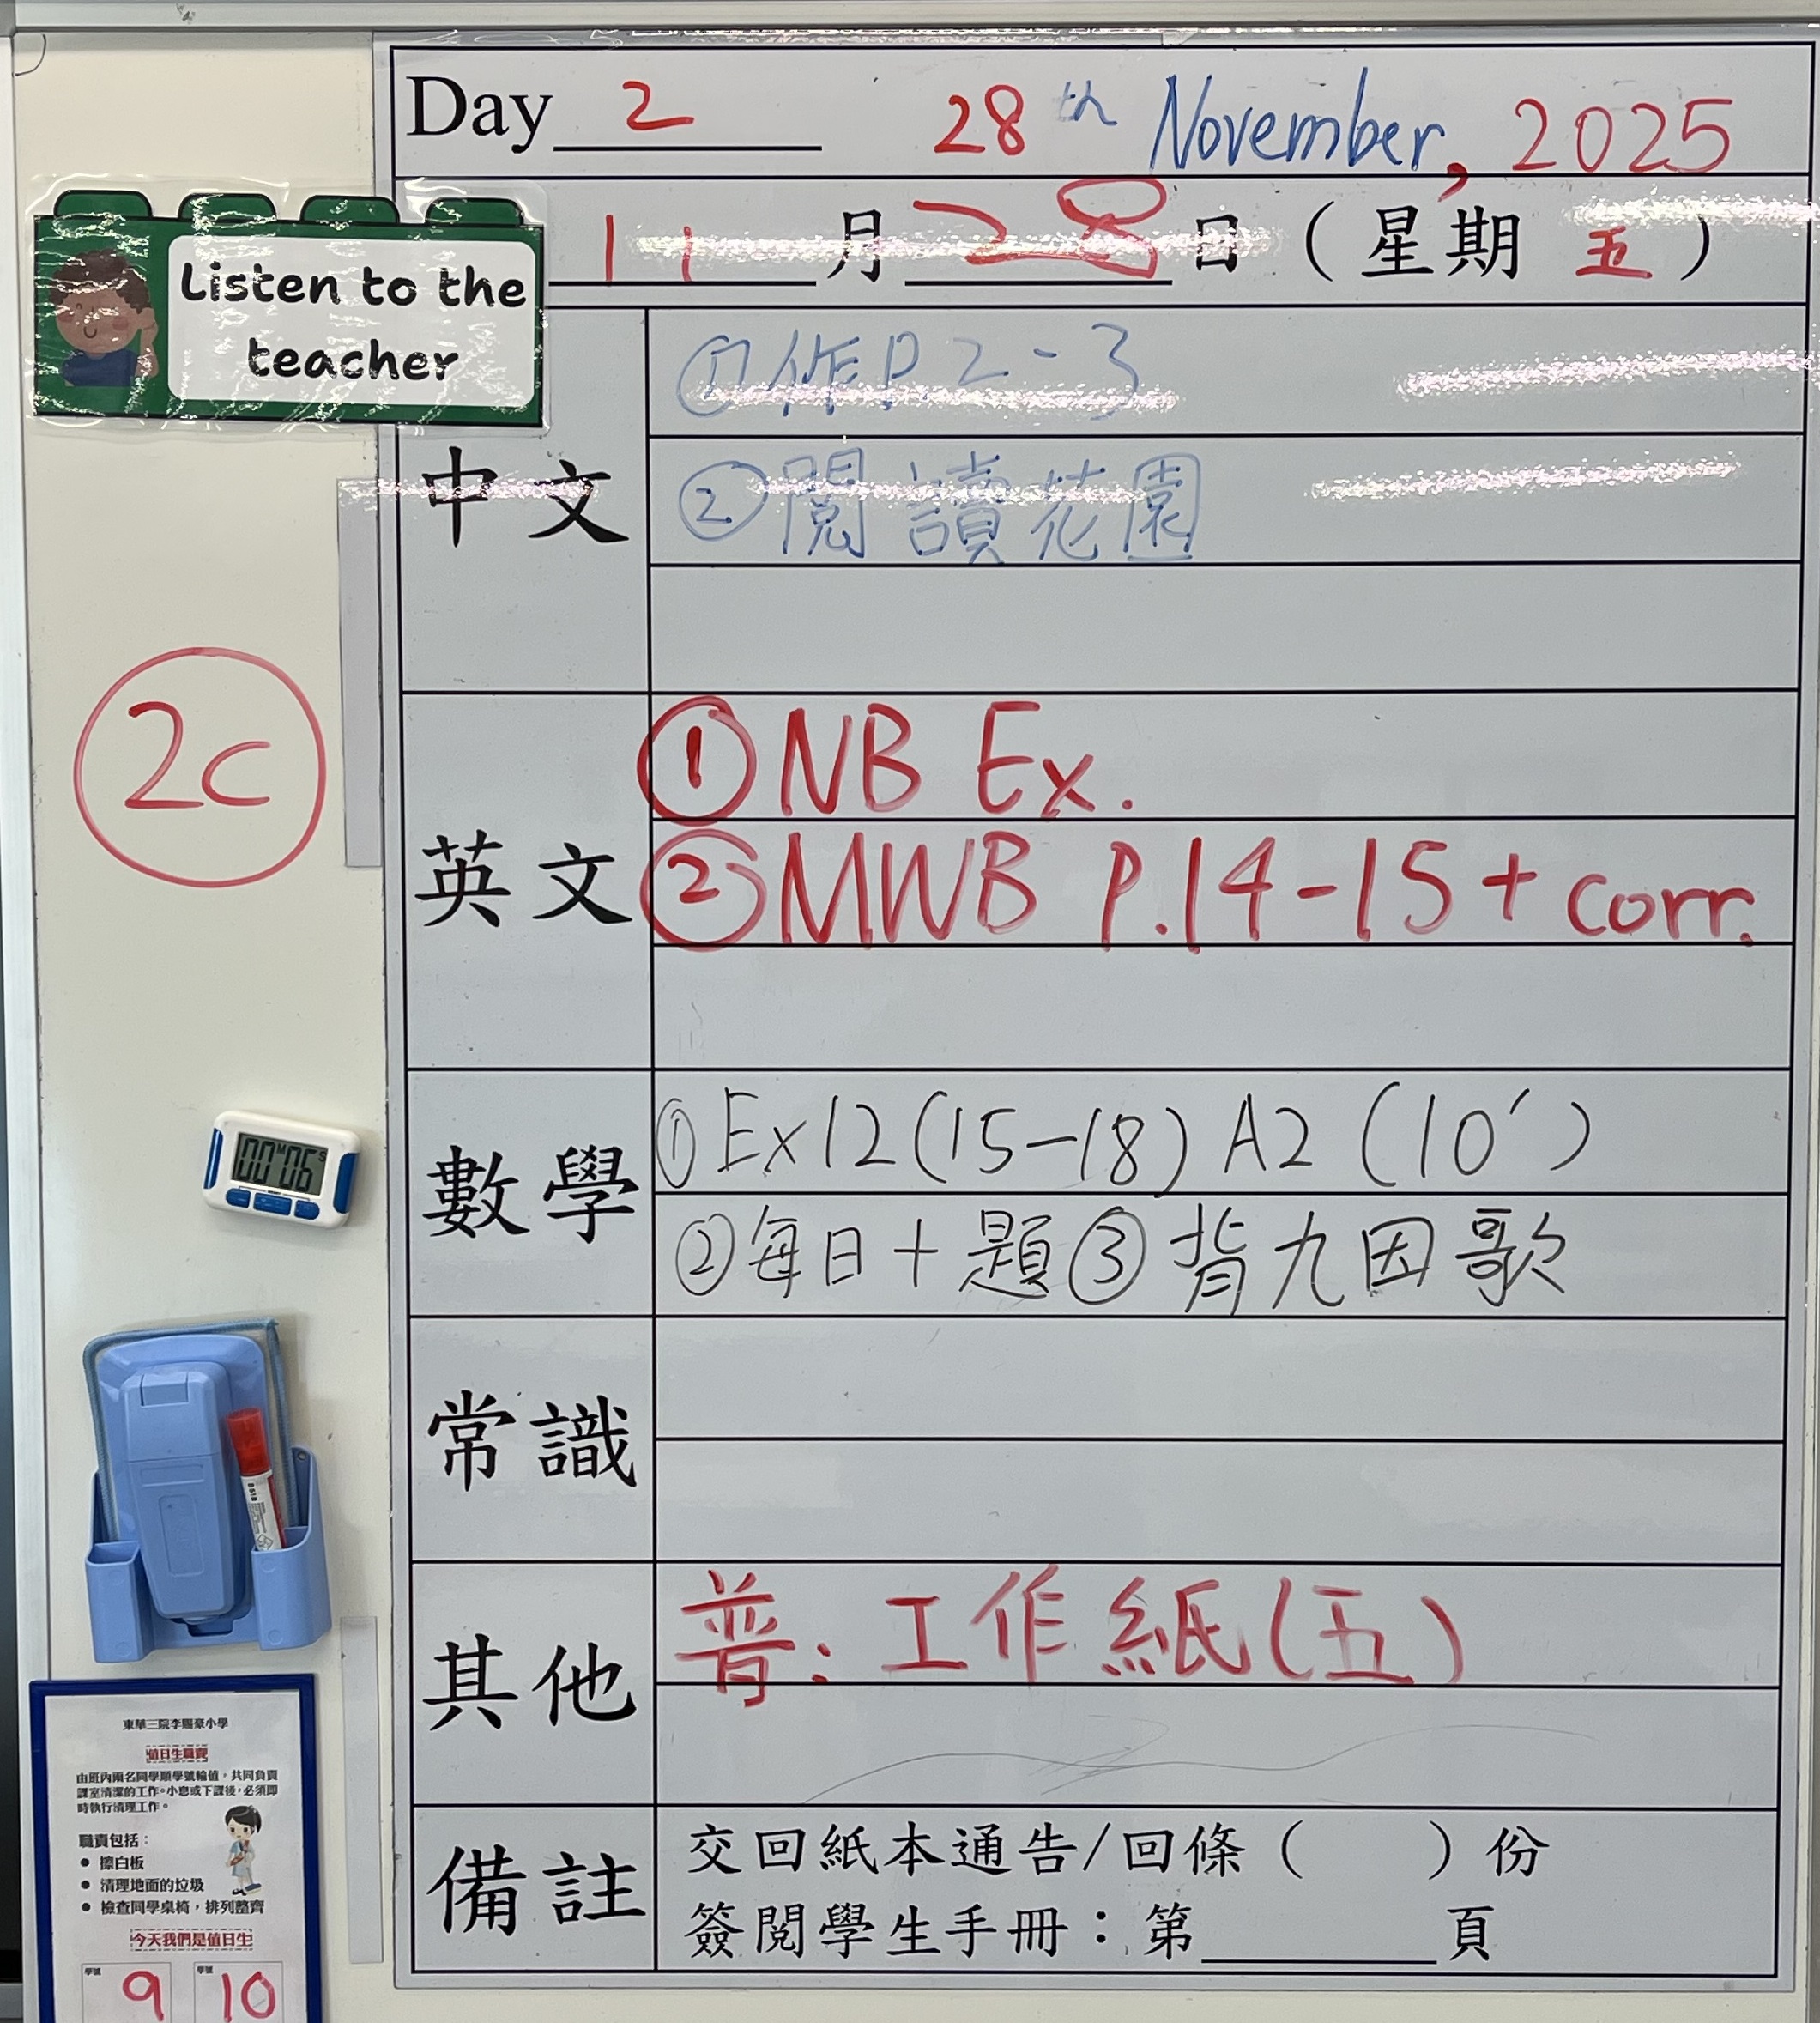 Day 2 28th November, 2025
11 月 28 日 (星期 五)
Listen to the
teacher
中文
①作P2-3
②閱讀花園
2C
英文
①NB Ex.
②MWB P.14-15 + corr.
數學
①Ex12(15-18) A2 (10')
②每日十題③背九因歌
00M06S
常識
其他
普: 工作紙(五)
備註
交回紙本通告/回條( )份
簽閱學生手冊:第____頁
東華三院李賜豪小學
值日生職責
由班內兩名同學順學號輪值,共同負責
課室清潔的工作。小息或下課後,必須即
時執行清理工作。
職責包括:
● 擦白板
● 清理地面的垃圾
● 檢查同學桌椅,排列整齊
今天我們是值日生
學號 9 學號 10